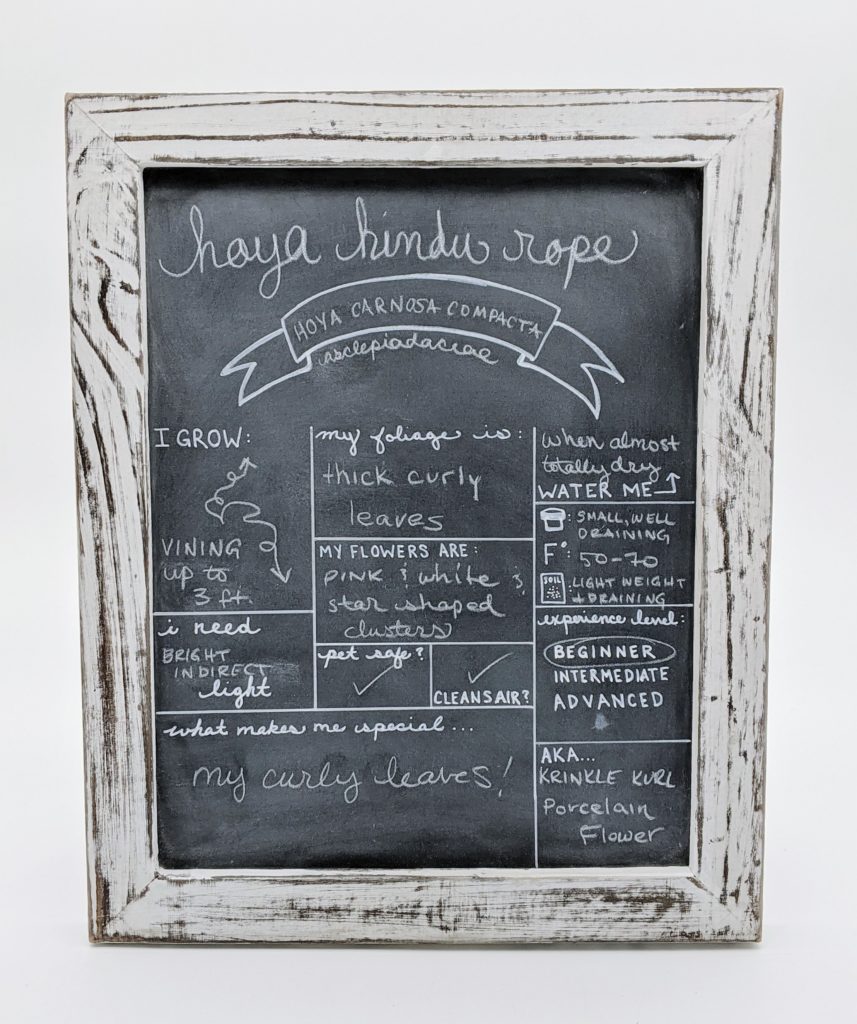 hoya hindu rope
HOYA CARNOSA COMPACTA
asclepiadaceae
I GROW:
VINING
up to
3 ft.
i need
BRIGHT
INDIRECT
light
my foliage is:
thick curly
leaves
MY FLOWERS ARE:
PINK & white &
star shaped
clusters
pet safe?
CLEANS AIR?
what makes me special...
my curly leaves!
when almost
totally dry
WATER ME
: SMALL, WELL
DRAINING
F°: 50-70
SOIL : LIGHT WEIGHT
+ DRAINING
experience level:
BEGINNER
INTERMEDIATE
ADVANCED
AKA...
KRINKLE KURL
Porcelain
Flower